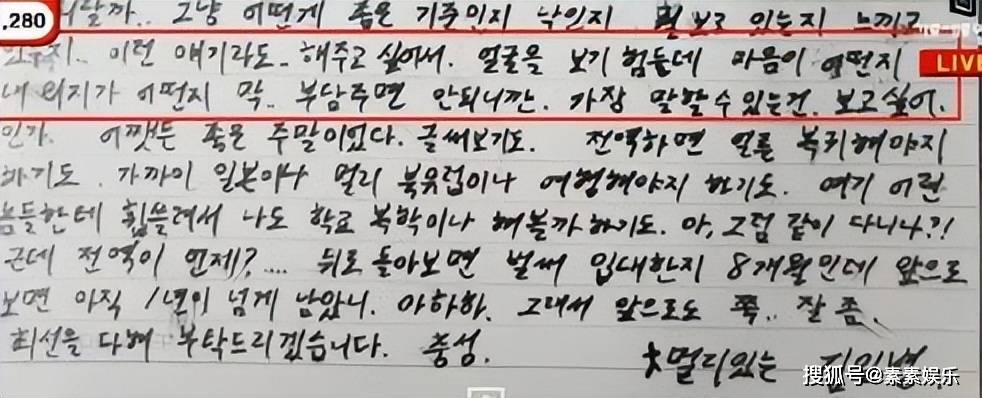 .280
날까. 그냥 어떤게 좋은 기준인지 낙인지 보고 있는지 느끼고
LIVE
있는지.. 이런 얘기라도.. 해주고 싶어서. 얼굴을 보기 힘든데 마음이 어떤지
내 의지가 어떤지 막.. 부담주면 안되니깐. 가장 말할 수 있는건. 보고싶어.
인가. 어쨋든 좋은 주말이었다. 글써보기도. 전역하면 얼른 복귀해야지
하기도. 가까이 일본이나 멀리 북유럽이나 여행해야지 하기도. 여기 어린
놈들한테 휩쓸려서 나도 학교 복학이나 해볼까 하기도. 아, 그럼 같이 다니나?!
근데 전역이 언제?.... 뒤로 돌아보면 벌써 입대한지 8개월인데 앞으로
보면 아직 1년이 넘게 남았니. 아하하. 그래서 앞으로도 쭉.. 잘 좀.
최선을 다해 부탁드리겠습니다. 충성.
멀리있는 김일병.
搜狐号@素素娱乐